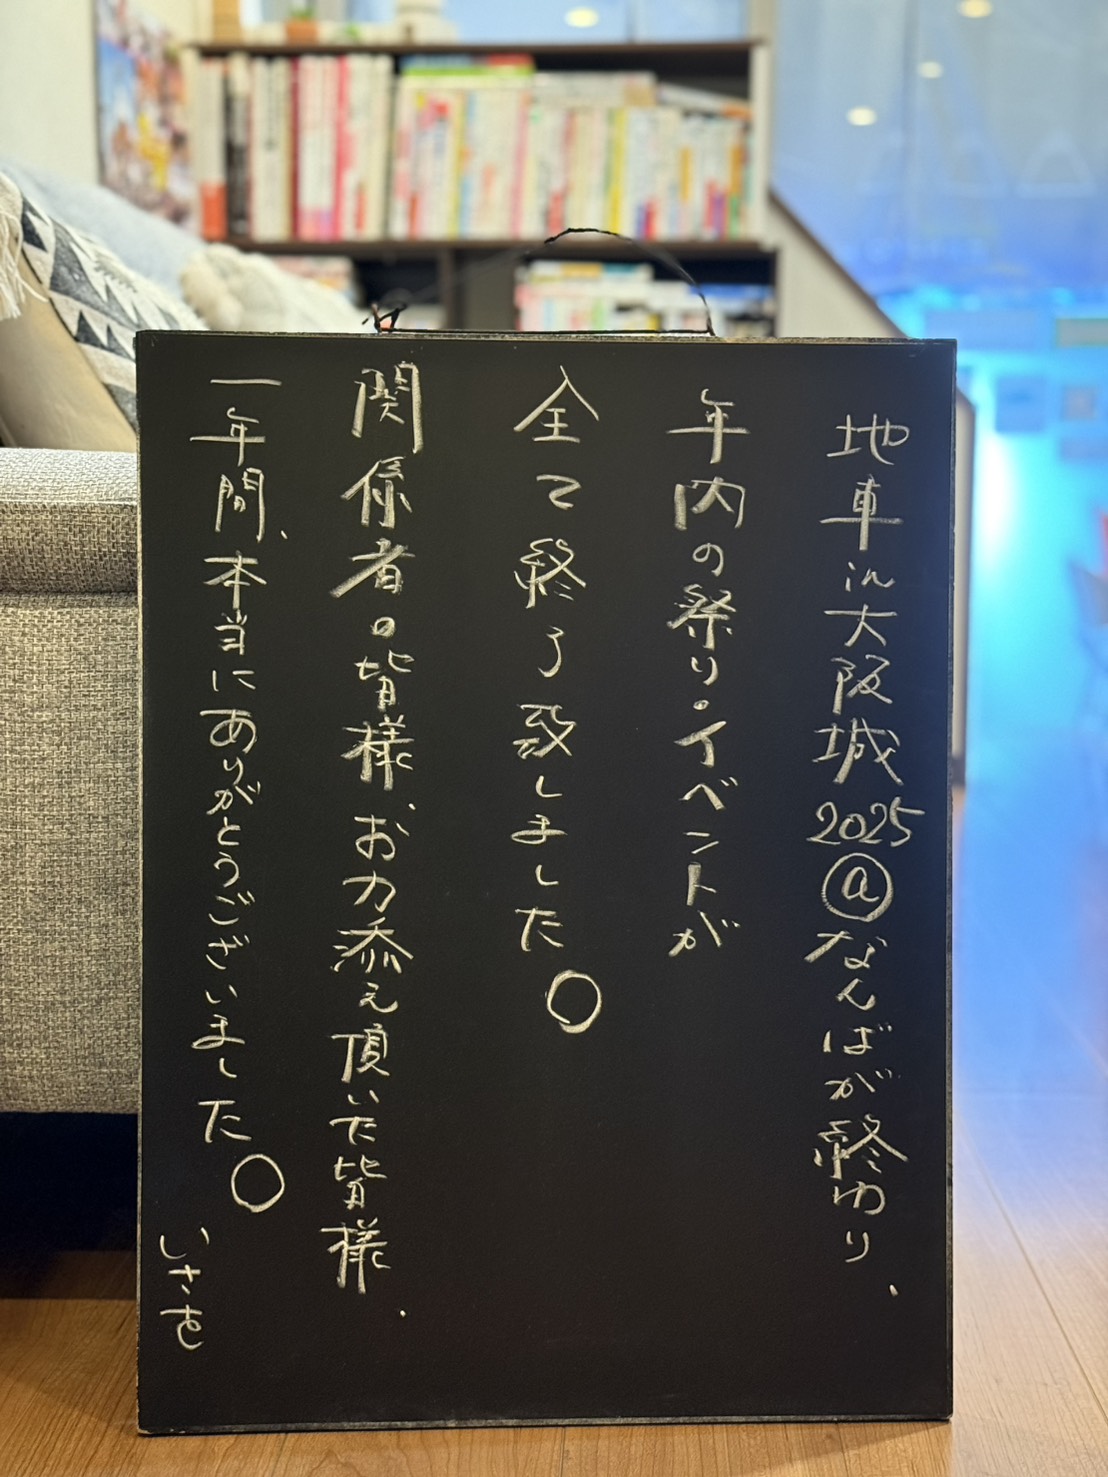 地車in大阪城2025@なんばが終わり、
年内の祭り・イベントが
全て終了致しました。
関係者の皆様、お力添え頂いた皆様、
一年間、本当にありがとうございました。
いさを